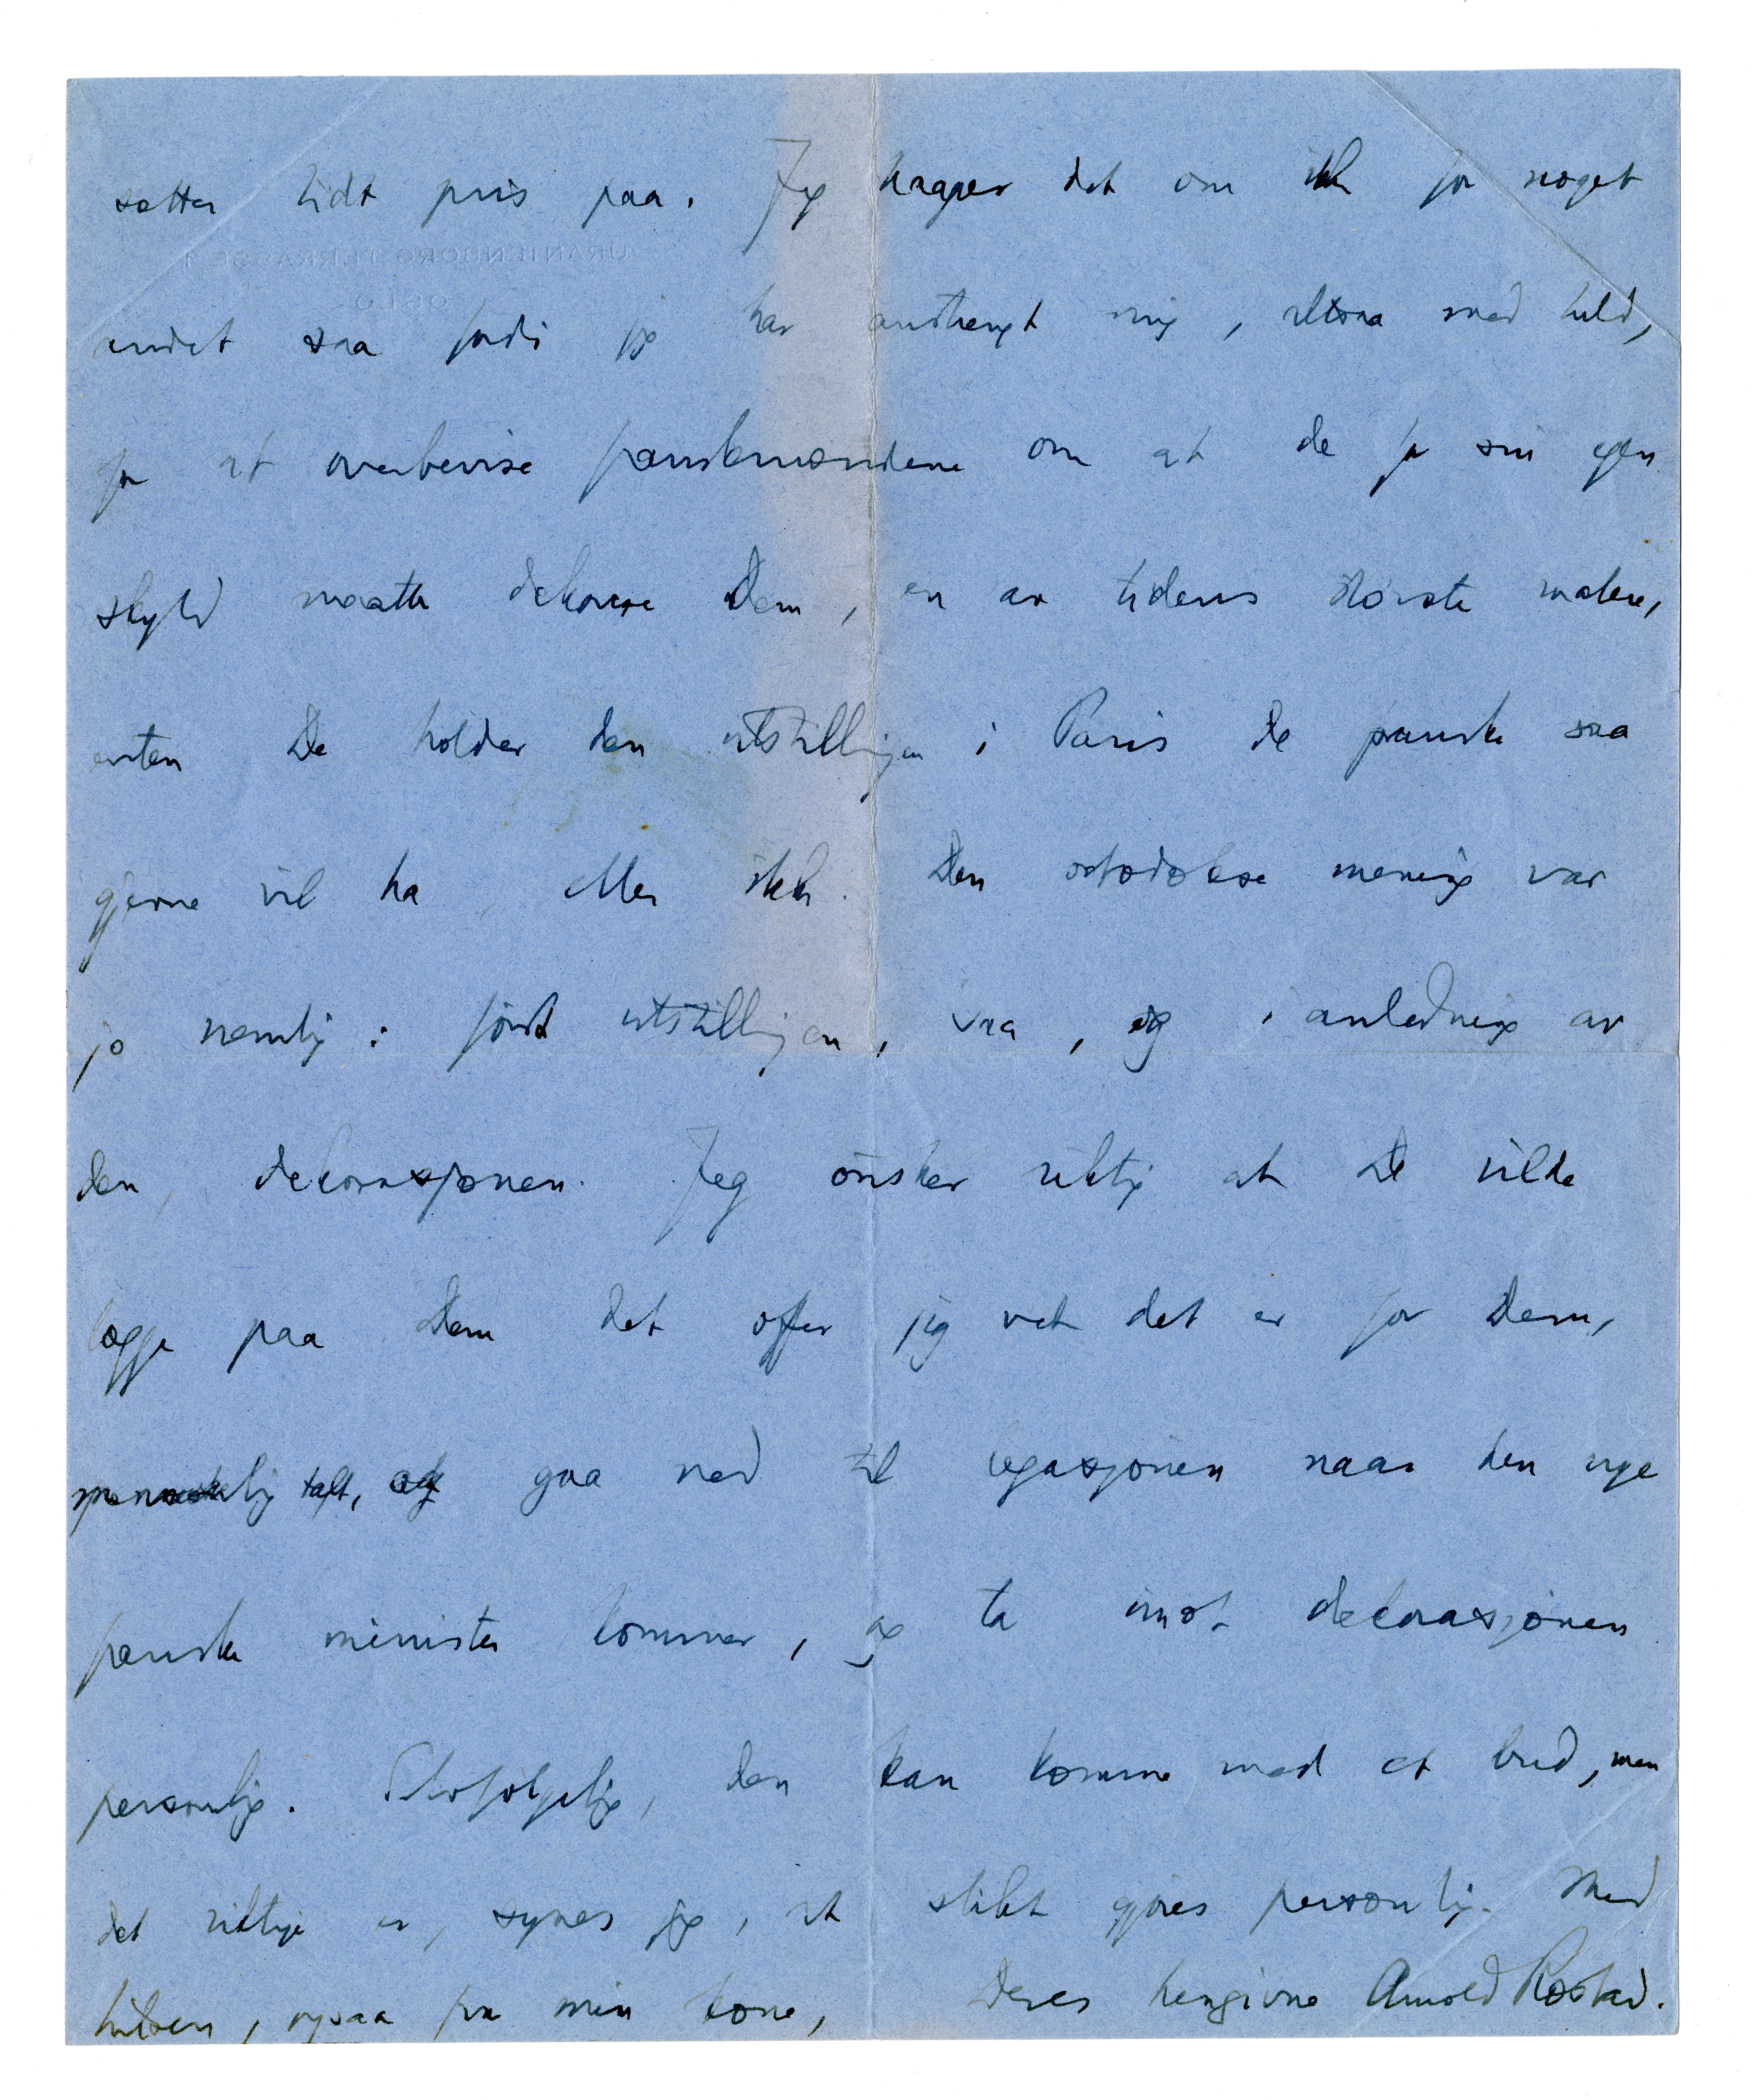 sætter lidt pris paa. Jeg
det om ikke for noget
andet saa fordi jeg har anstrengt mig, altsaa med held,
for at overbevise franskmændene om at de for sin egen
skyld maatte dekorere Dem, en av tidens største malere,
enten De holder den utstillingen i Paris de franske saa
gjerne vil ha, eller ikke. Den ortodokse mening var
jo nemlig: først utstillingen, saa, og i anledning av
den, dekorasjonen. Jeg ønsker riktig at De vilde
lægge paa Dem det offer jeg vet det er for Dem,
menneskelig talt, og gaa ned til legasjonen naar den nye
franske minister kommer, og ta imot dekorasjonen
personlig. Selvfølgelig, den kan komme med et bud, men
det riktige er, synes jeg, at slikt gjøres personlig. Med
hilsen, ogsaa fra min kone, Deres hengivne Arnold Ræstad.
URANIENBORG TERRASSE
OSLO